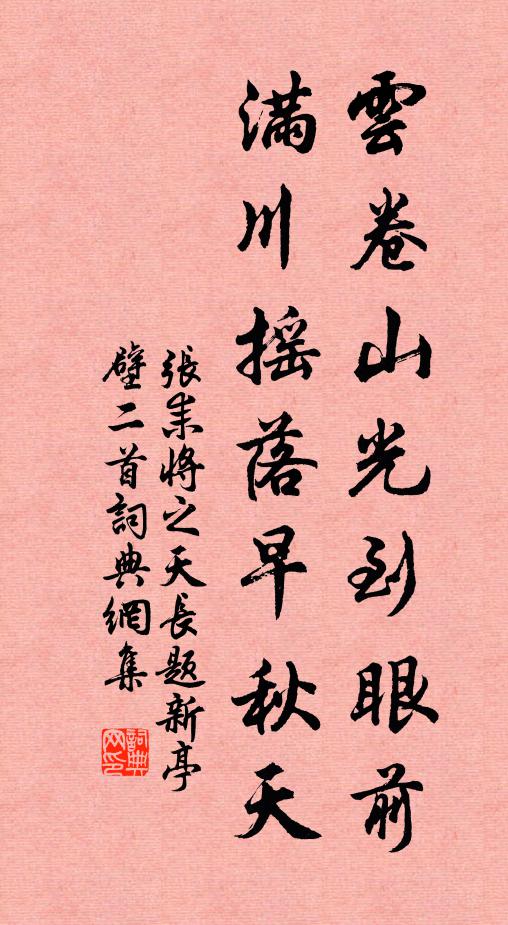 雲卷山光到眼前
滿川搖落早秋天
張耒將之天長題新亭
壁二首詞典網集
詞典
网印